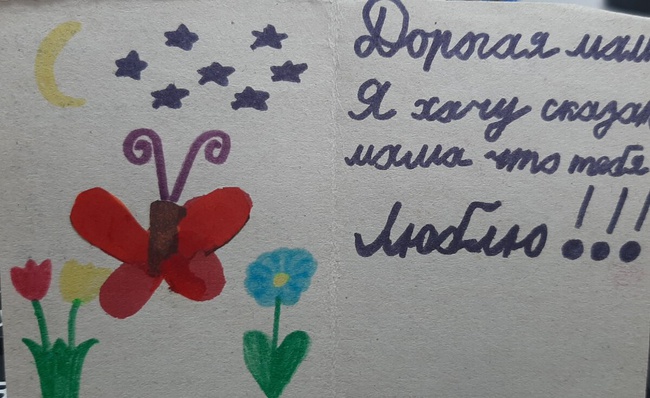 Дорогая мам
Я хачу сказат
мама что тебя
Люблю!!!